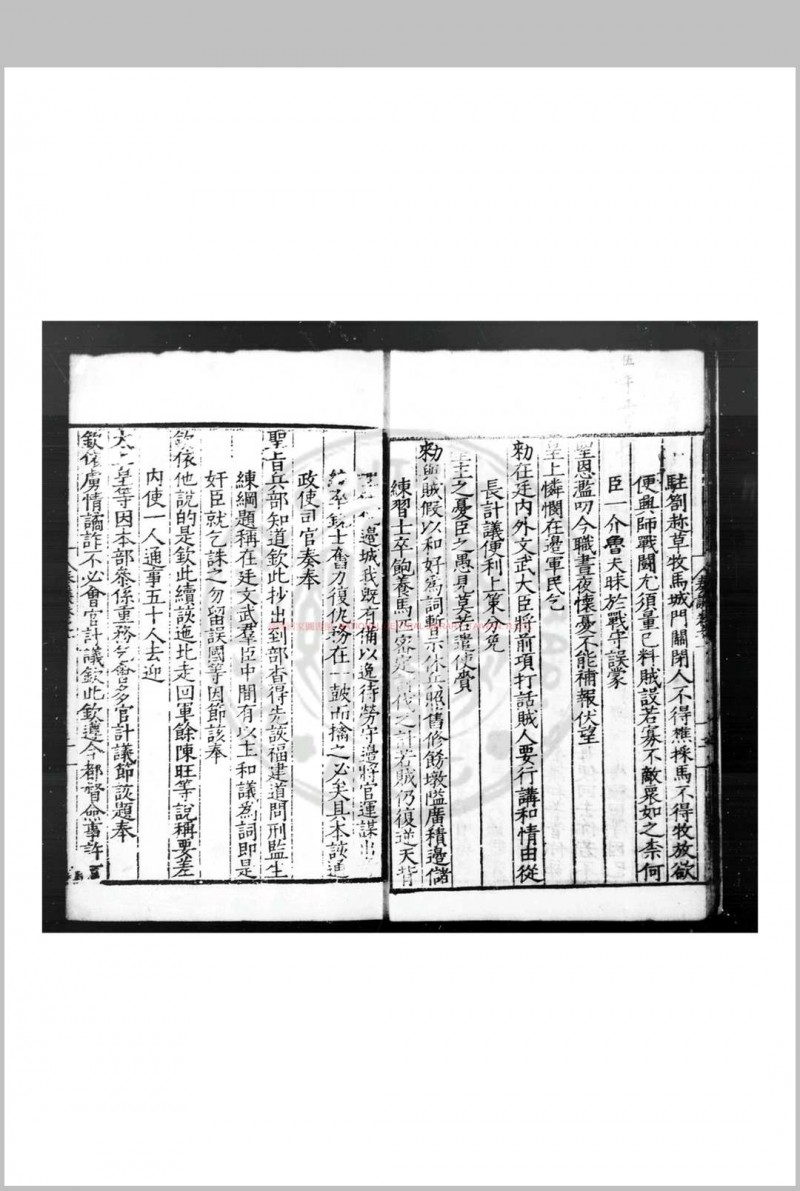 駐劄趂草牧馬城門關閉人不得樵採馬不得牧放欲
便興師戰鬪尤須量己料賊設若寡不敵衆如之柰何
臣一介魯夫昧於戰守誤蒙
聖恩濫叨今職晝夜懷憂不能補報伏望
皇上憐憫在邊軍民乞
勑在廷内外文武大臣將前項打話賊人要行講和情由從
長計議便利上策分免
主之憂臣之愚見莫若遣使賫
勑與賊假以和好爲詞暫示休兵照舊修飭墩隘廣積邊儲
練習士卒飽養馬匹密定之計若賊仍復逆天背
邊城我既有備以逸待勞守邊將官運謀出
銳士奮力復仇務在一鼓而擒之必矣具本該通
政使司官奏奉
聖旨兵部知道欽此抄出到部查得先該福建道問刑監生
練綱題稱在廷文武羣臣中間有以主和議爲詞即是
奸臣就乞誅之勿留誤國等因節該奉
欽依他說的是欽此續該迤北走回軍餘陳旺等說稱要差
内使一人通事五十人去迎
太上皇等因本部叅係重務乞會多官計議節該題奉
欽依虜情譎詐不必會官計議欽此欽遵今都督僉事許